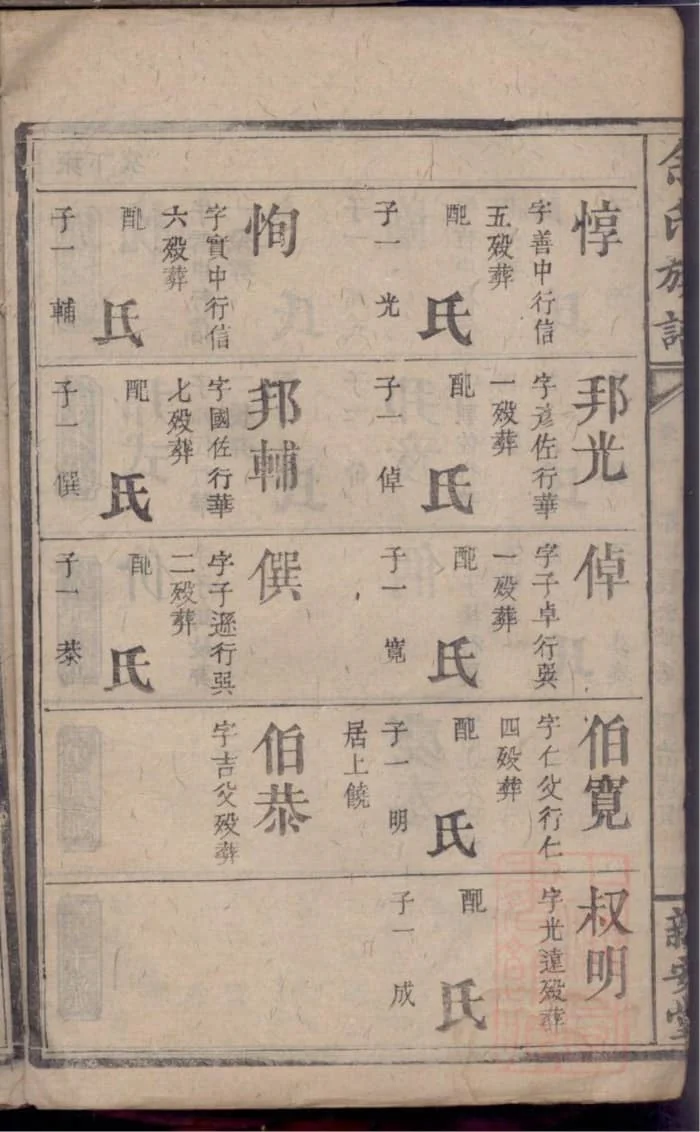 余氏族譜
新安堂
惇
字善中行信
五歿葬
配
氏
子一 光
恂
字實中行信
六歿葬
配
氏
子一 輔
邦光
字彥佐行華
一歿葬
配
氏
子一 倬
邦輔
字國佐行華
七歿葬
配
氏
子一 僎
倬
字子卓行巽
一歿葬
配
氏
子一 寬
僎
字子遜行巽
二歿葬
配
氏
子一 恭
伯寬
字仁父行仁
四歿葬
配
氏
子一 明
居上饒
伯恭
字吉父歿葬
叔明
字光遠歿葬
配
氏
子一 成